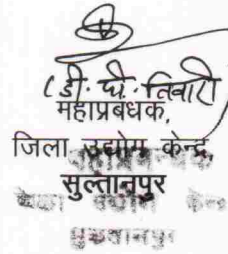 (डी. पी. तिवारी)
महाप्रबधक,
जिला उद्योग केन्द्र,
सुल्तानपुर